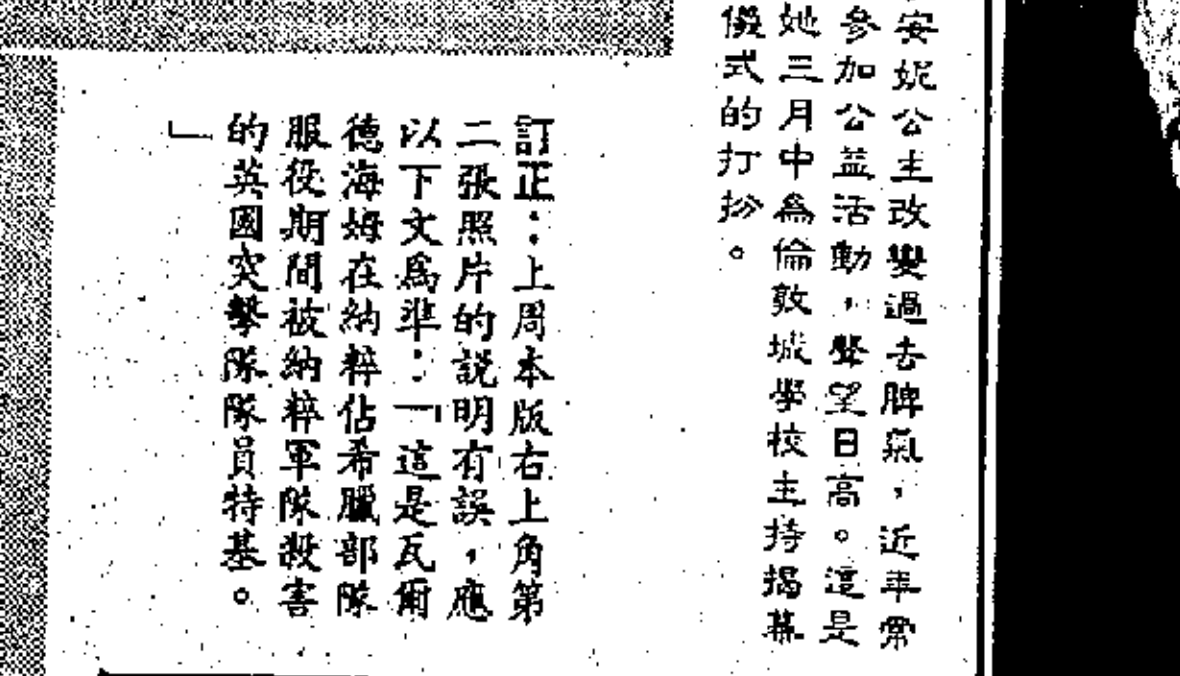 安妮公主改變過去脾氣，近年常
參加公益活動，聲望日高。這是
她三月中為倫敦城學校主持揭幕
儀式的打扮。
訂正：上周本版右上角第
二張照片的説明有誤，應
以下文爲準：「這是瓦爾
德海姆在納粹佔希臘部隊
服役期間被納粹軍隊殺害
的英國突擊隊隊員特基。
」